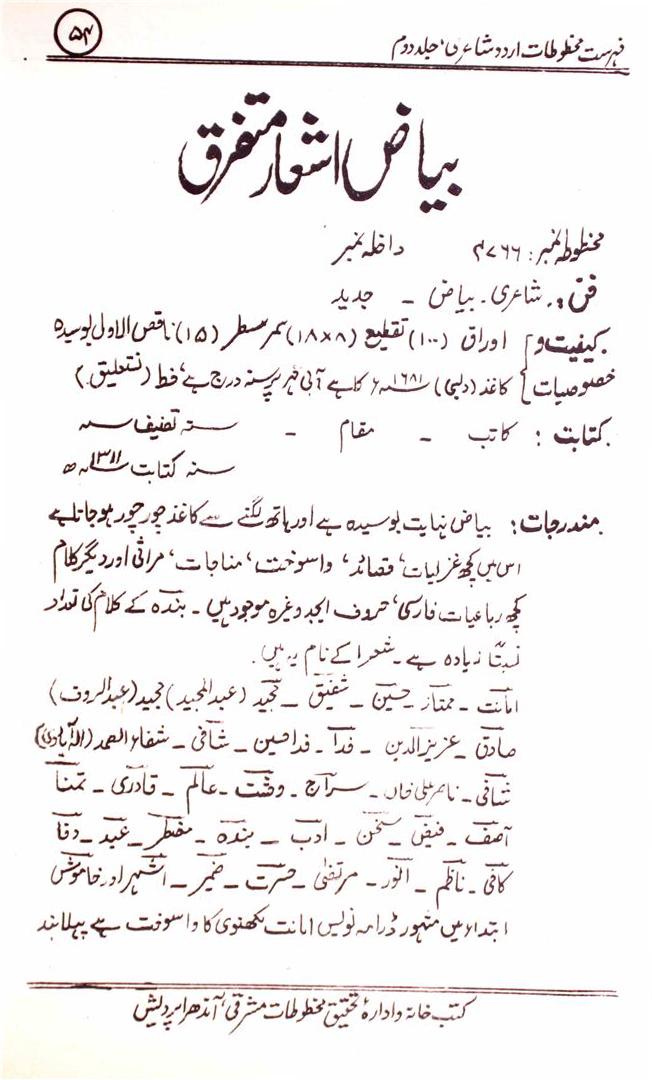 فہرست مخطوطات اردو شاعری، جلد دوم
۵۴
بیاض اشعار متفرق
مخطوطہ نمبر: ۴۷۶۶ داخلہ نمبر
فن: شاعری۔ بیاض ۔ جدید
کیفیت و اوراق (۱۰۰) تقطیع (۸×۱۸) سمر سطر (۱۵) ناقص الاول بوسیدہ
خصوصیات کاغذ (دلیی) ۱۶۸۱ء کا ہے آبی مہر پر سنہ درج ہے، خط (نستعلیق)
کتابت: کاتب ۔ مقام ۔ سنہ تصنیف سنہ
سنہ کتابت ۱۳۱۱ھ
مندرجات: بیاض نہایت بوسیدہ ہے اور ہاتھ لگنے سے کاغذ چور چور ہو جاتا ہے
اس میں کچھ غزلیات، قصائد، واسوخت، مناجات، مراثی اور دیگر کلام
کچھ رباعیات فارسی، حروف ابجد وغیرہ موجود ہیں۔ بندہ کے کلام کی تعداد
نسبتاً زیادہ ہے۔ شعرا کے نام یہ ہیں۔
امانت ۔ ممتاز ۔ حسین ۔ شفیق ۔ مجید (عبدالمجید) مجید (عبدالروف)
صادق ۔ عزیز الدین ۔ فدا ۔ فدا حسین ۔ شافی ۔ شفاء الصمد (الہ آبادی)
شافی ۔ ناصر علی خاں ۔ سراج ۔ وحشت ۔ عالم ۔ قادری ۔ تمنا
آصف ۔ فیضی ۔ سخن ۔ ادب ۔ بندہ ۔ مضطر ۔ عید ۔ وفا
کافی ۔ ناظم ۔ انور ۔ مرتضیٰ ۔ حسرت ۔ ضمیر ۔ اشہر اور خاموش
ابتداء میں مشہور ڈرامہ نویس امانت لکھنوی کا واسوخت ہے پہلا بند
کتب خانہ و ادارۂ تحقیق مخطوطات مشرقی، آندھرا پردیش